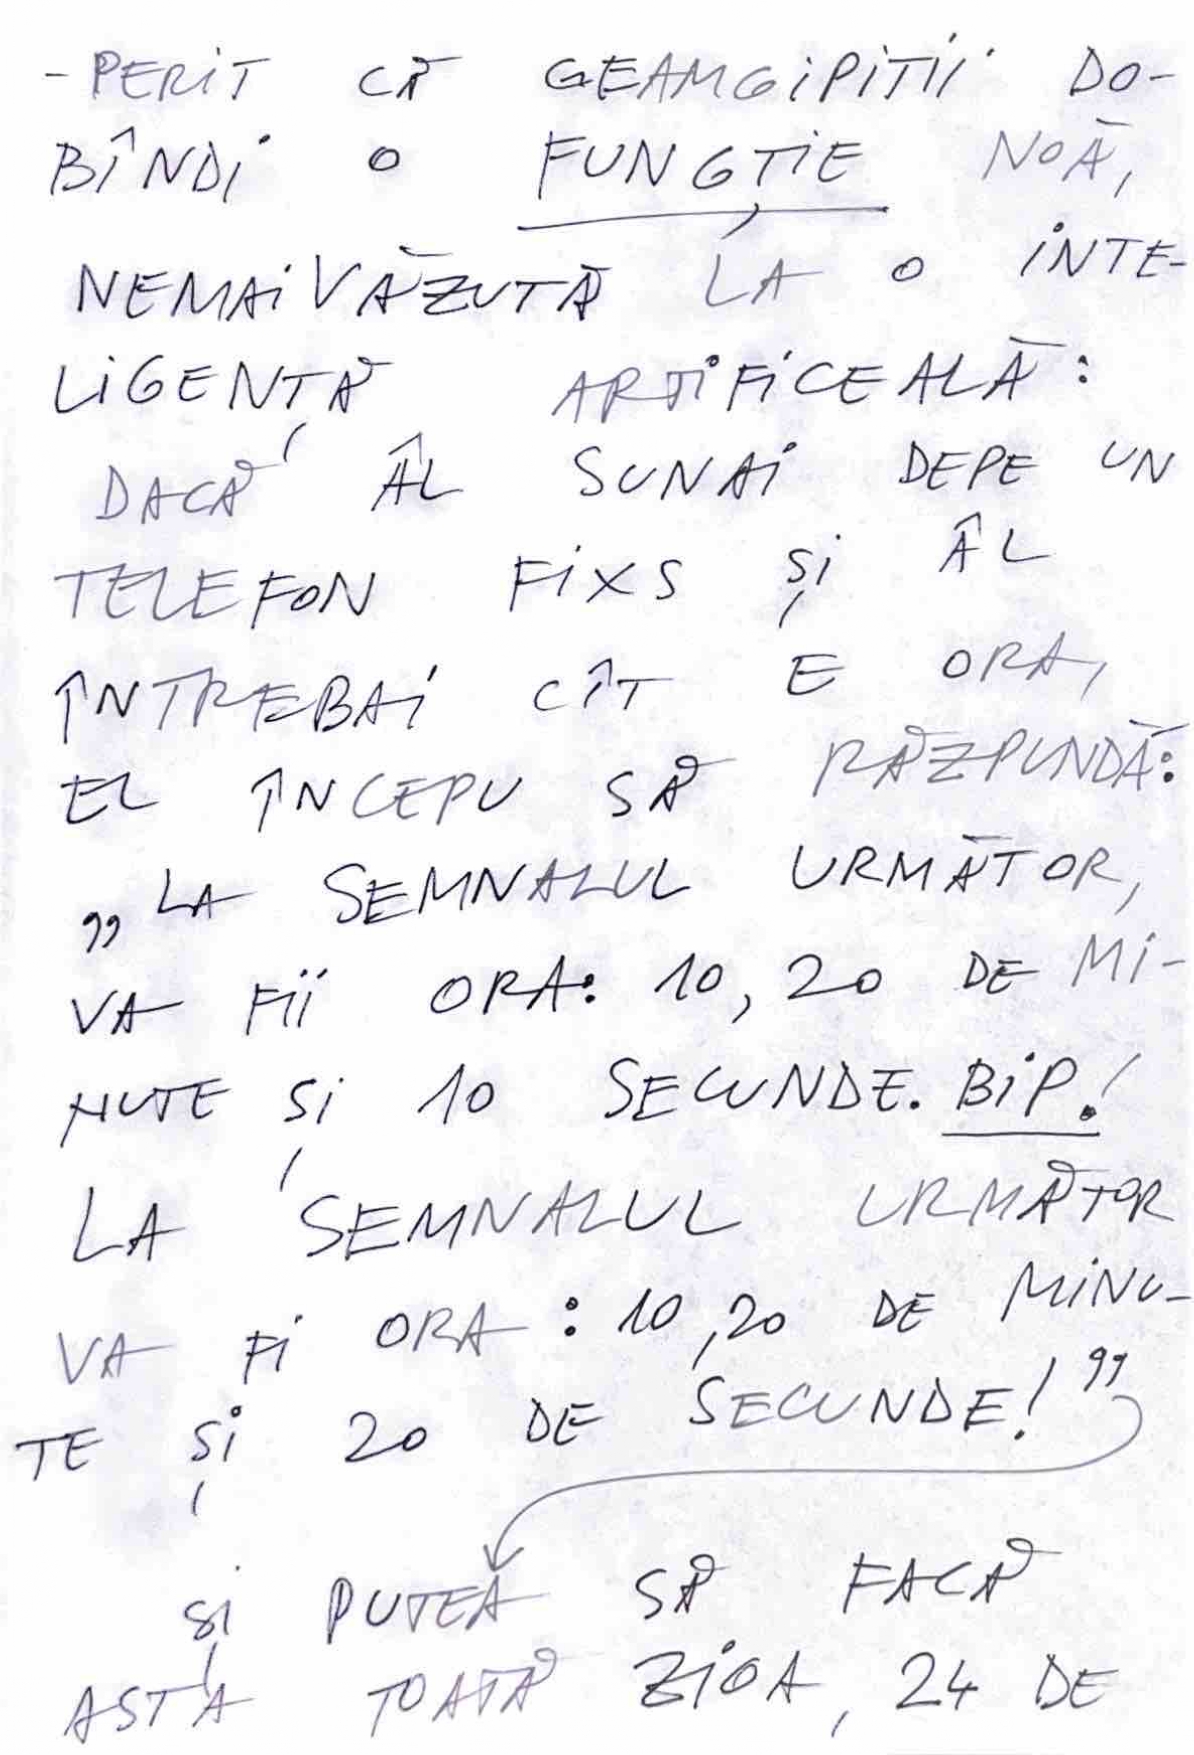 -PERiT CĂ GEAMGiPiTii DO-
BÎNDi O FUNGȚIE NOĂ,
NEMAiVĂZUTĂ LA O iNTE-
LiGENȚĂ ARTiFiCEALĂ:
DACĂ ÂL SUNAi DEPE UN
TELEFON FiXS ȘI ÂL
ÎNTREBAi CÎT E ORA,
EL ÎNCEPU SĂ RĂZPUNDĂ:
„LA SEMNALUL URMĂTOR,
VA Fii ORA: 10, 20 DE Mi-
NUTE Și 10 SECUNDE. BiP!
LA SEMNALUL URMĂTOR
VA Fi ORA: 10,20 DE MiNU-
TE Și 20 DE SECUNDE!”
Și PUTEA SĂ FACĂ
ASTA TOATĂ ZiOA, 24 DE